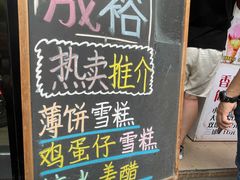 成裕
热卖推介
薄饼雪糕
鸡蛋仔雪糕
姜醋
香